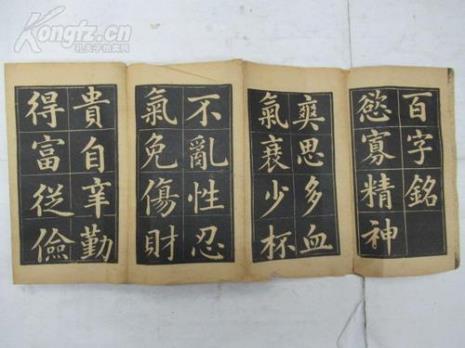 Kongfz.cn
孔夫子旧书网
百字銘
慾寡精神
爽思多血
氣衰少杯
不亂性忍
氣免傷財
貴自辛勤
得富從儉